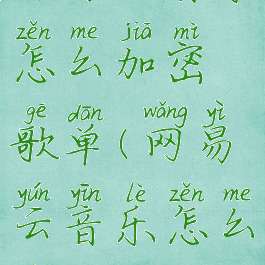 zěn me jiā mì
怎么加密
gē dān wǎng yì
歌单(网易
yún yīn lè zěn me
云音乐怎么